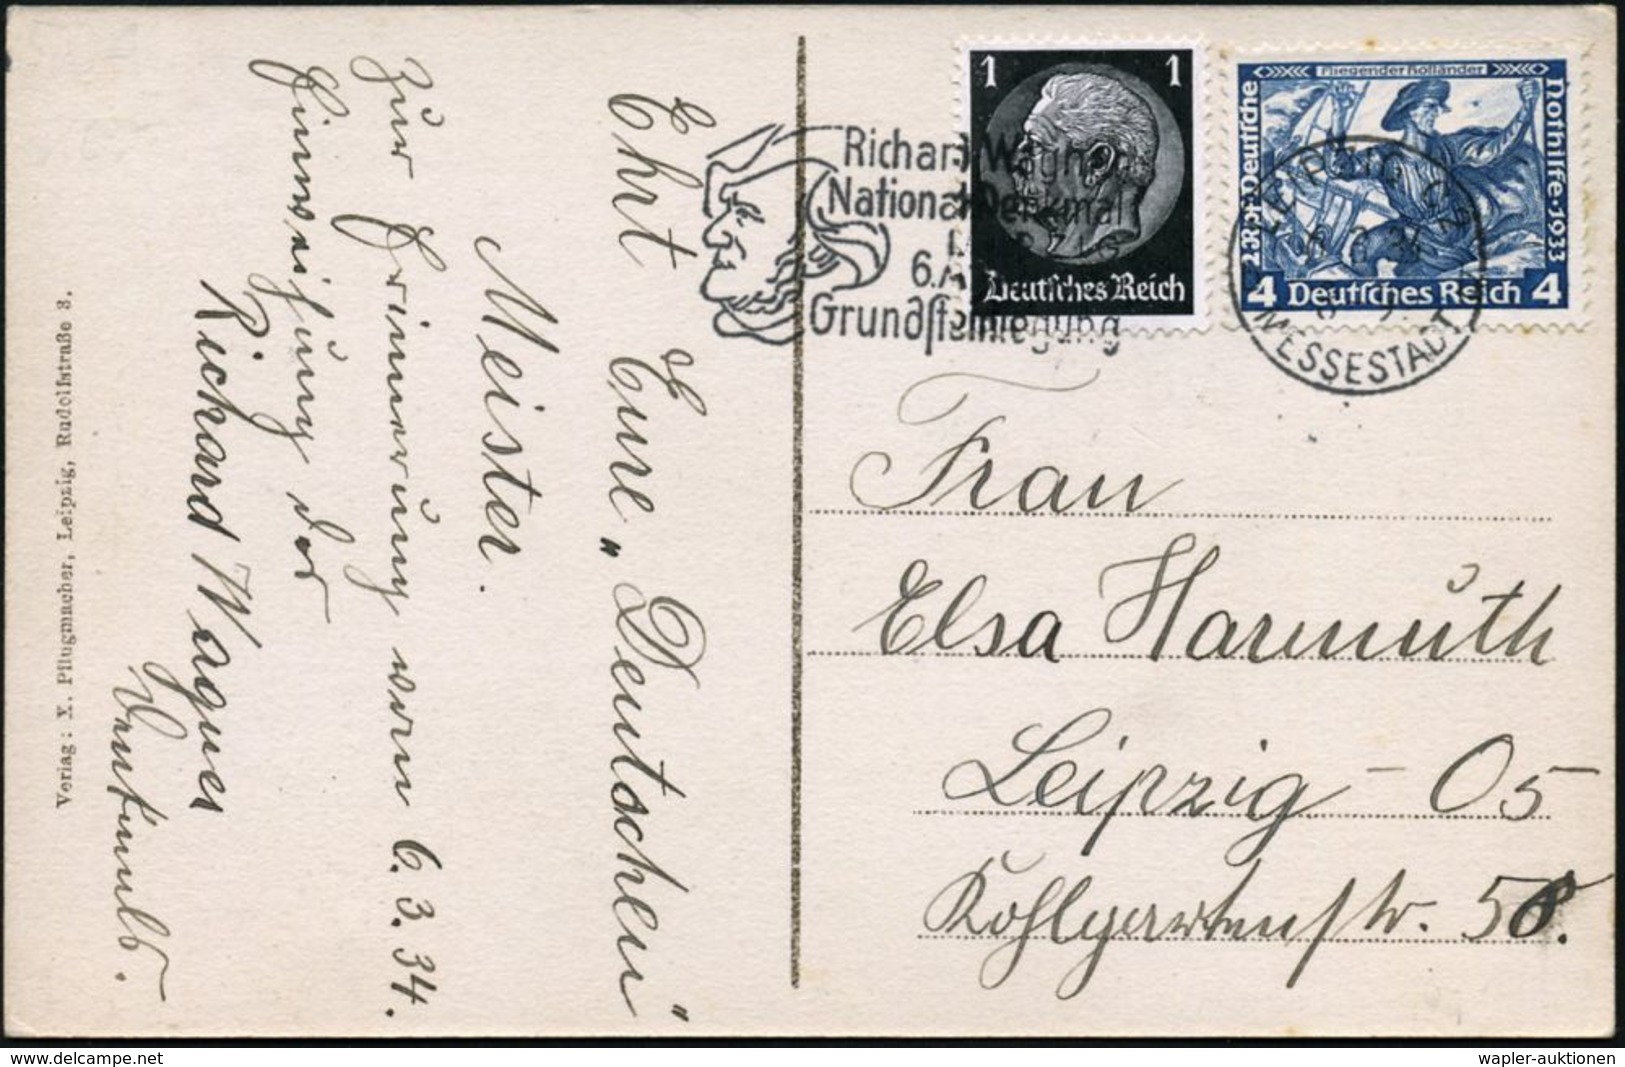 Ehrt Eure „Deutschen"
Meister.
Zur Erinnerung vom 6.3.34.
Einweihung des
Richard Wagner
Denkmals.
Verlag: X. Pflugmacher, Leipzig, Rudolfstraße 3.
Richard Wagner
National Denkmal
6.
Grundsteinlegung
1 1
Deutsches Reich
Fliegender Holländer
Deutsche
Nothilfe·1933
4 Deutsches Reich 4
LEIPZIG C2
MESSESTADT
Frau
Elsa Harmuth
Leipzig – O5
Kohlgartenstr. 58.
www.delcampe.net
wapler-auktionen